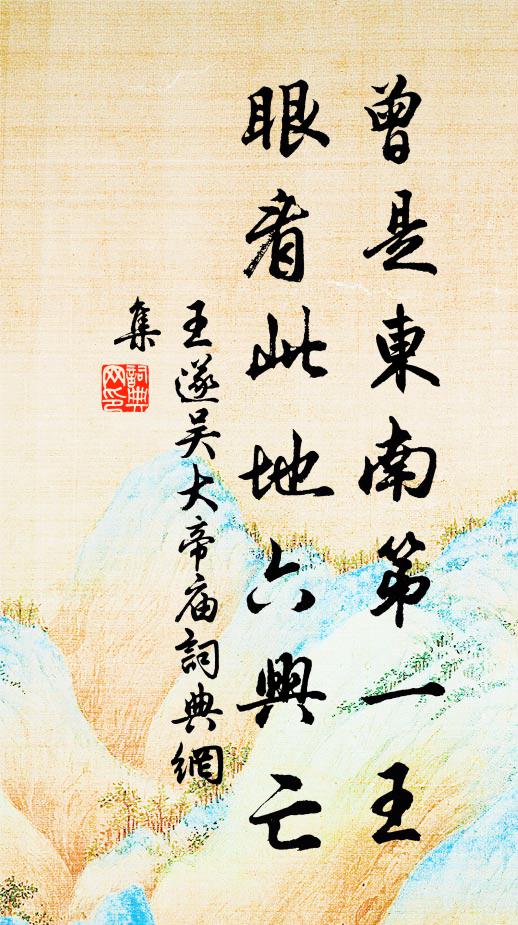 曾是東南第一王
眼看此地六興亡
王遂吴大帝庙詞典網
集
詞典
网印